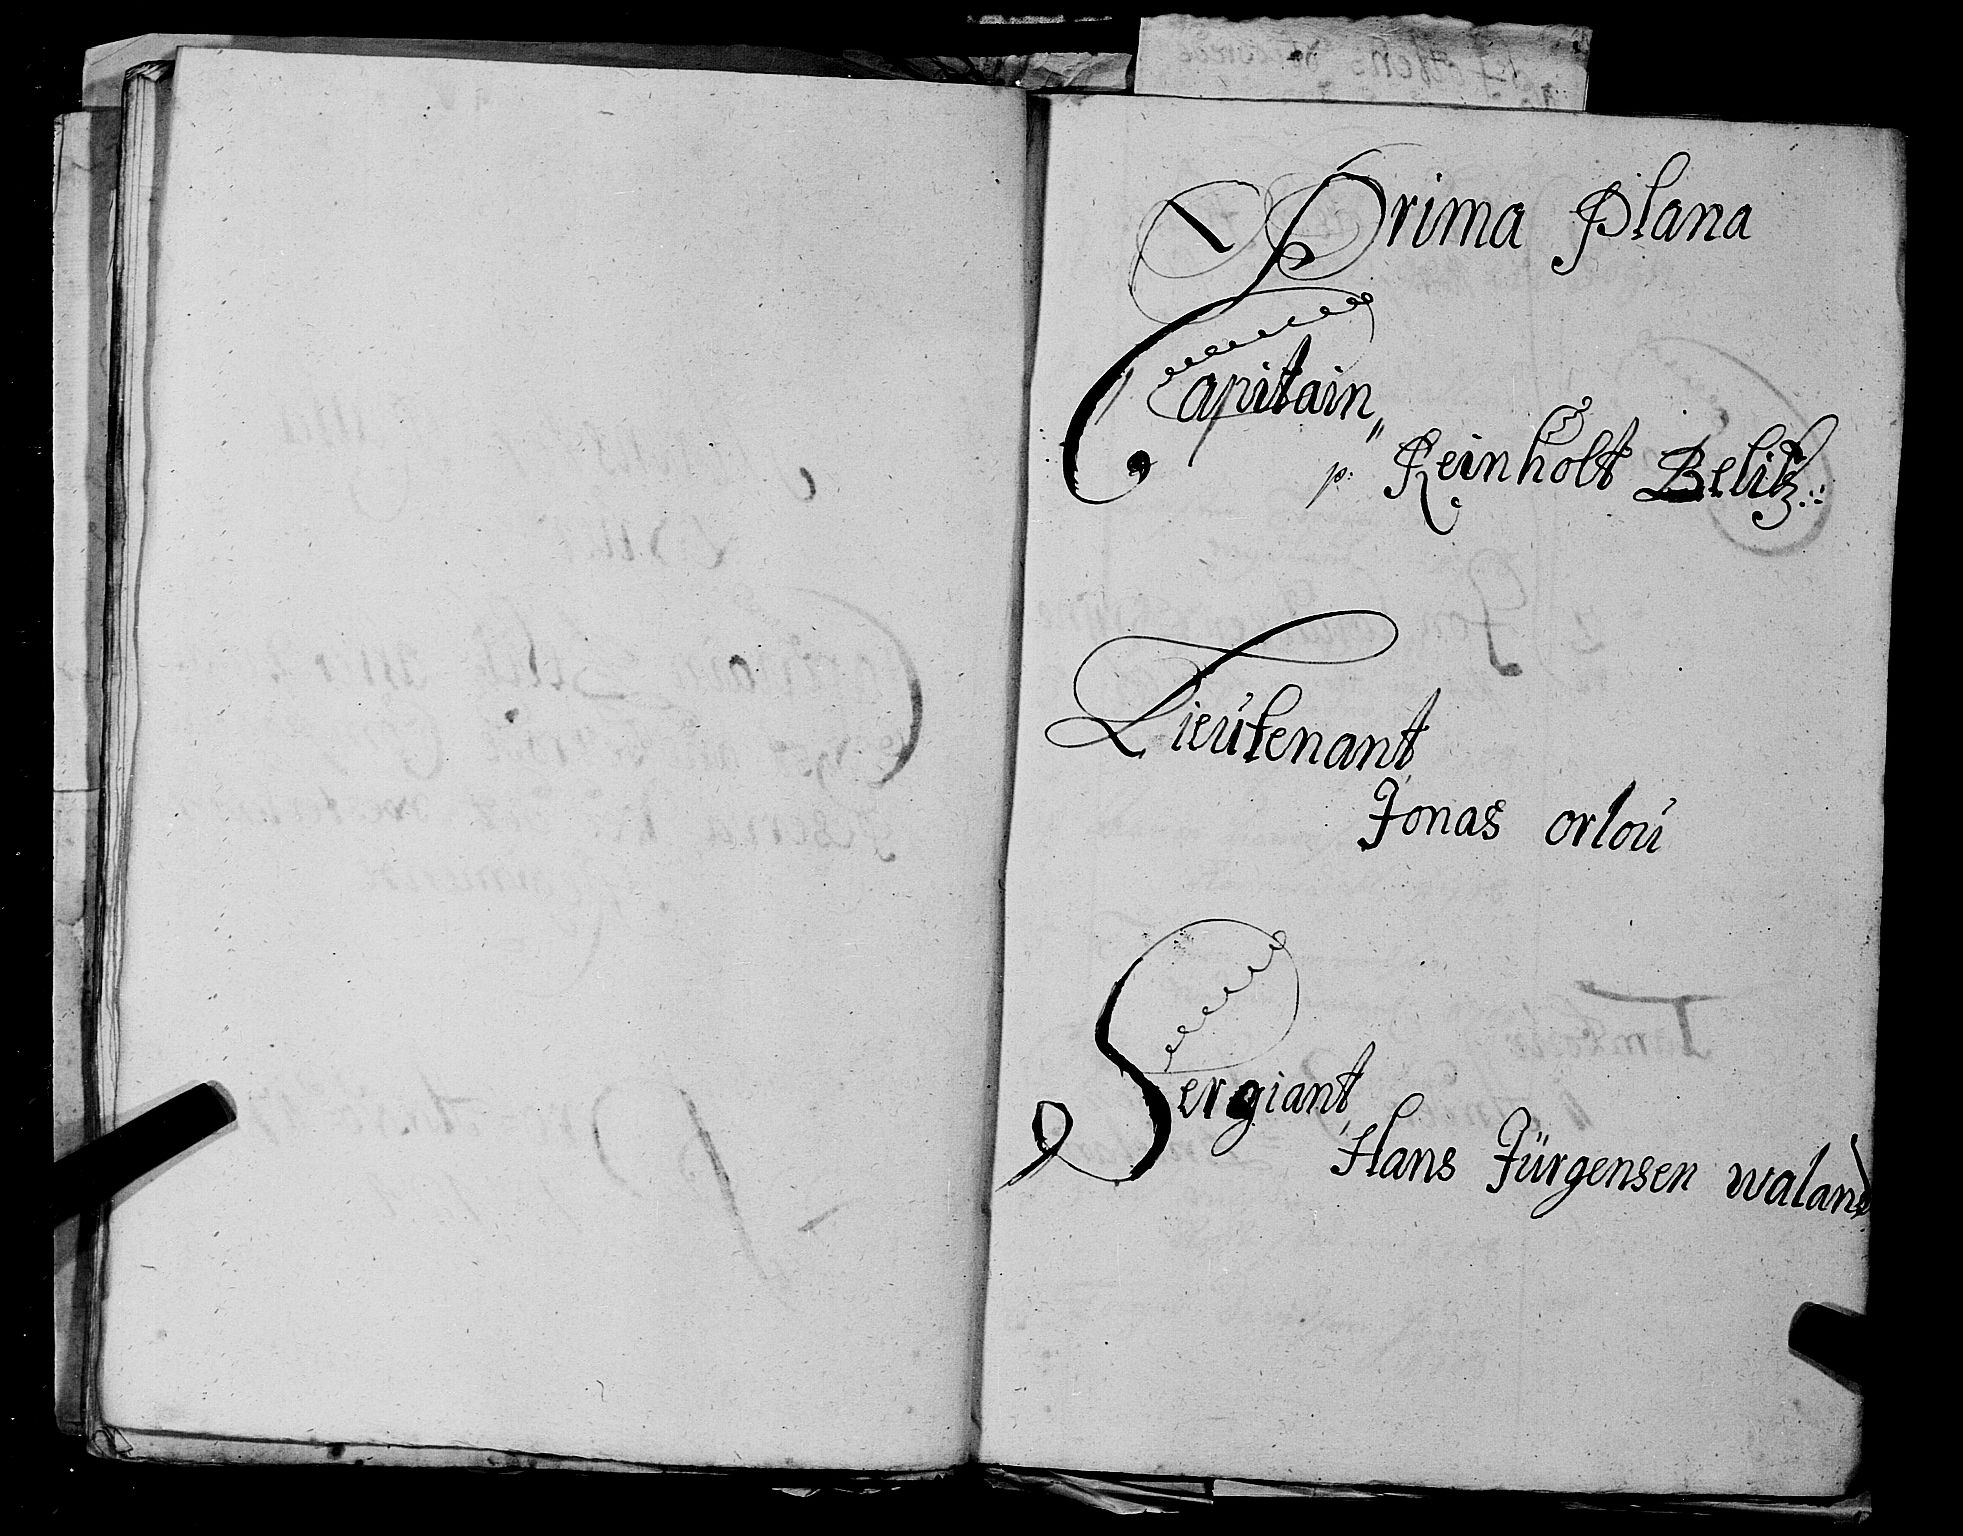 Prima Plana
Capitain„
p: Reinholt Belitz.:
Lieútenant
Jonas orloú
Sergiant
Hans Jürgensen waland